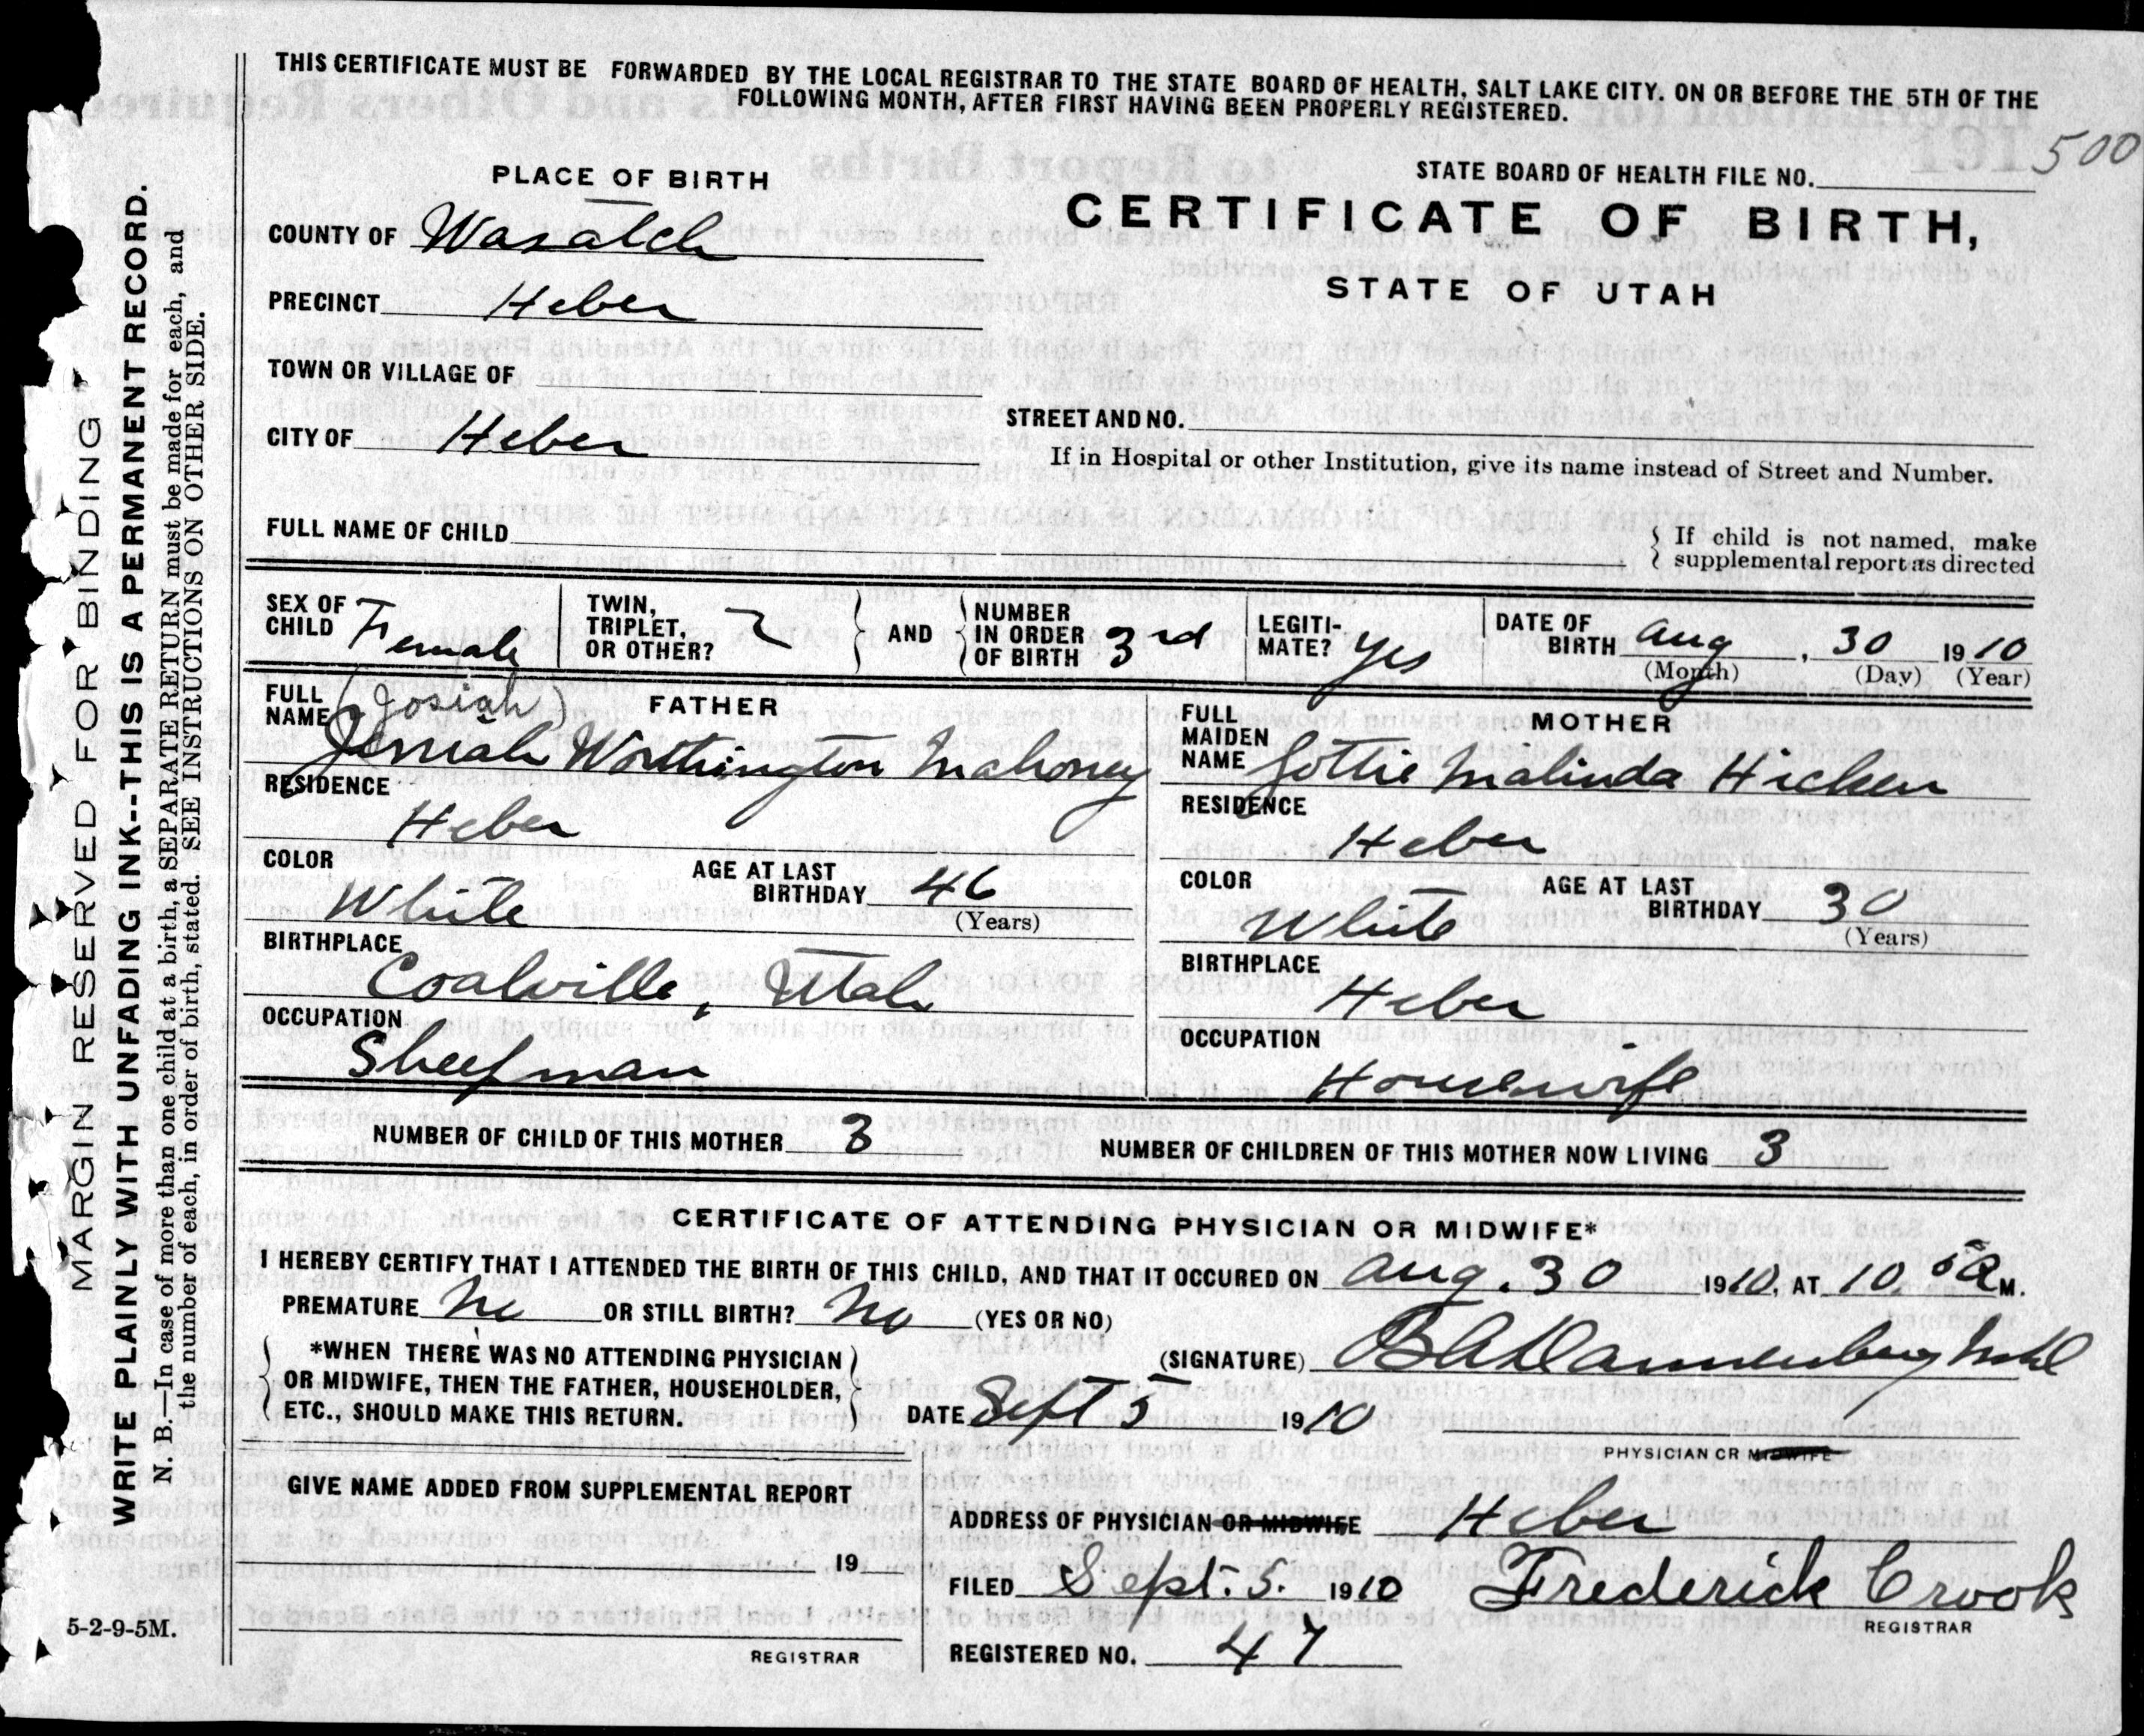 THIS CERTIFICATE MUST BE FORWARDED BY THE LOCAL REGISTRAR TO THE STATE BOARD OF HEALTH, SALT LAKE CITY. ON OR BEFORE THE 5TH OF THE
FOLLOWING MONTH, AFTER FIRST HAVING BEEN PROPERLY REGISTERED.
500
PLACE OF BIRTH
STATE BOARD OF HEALTH FILE NO.
CERTIFICATE OF BIRTH,
STATE OF UTAH
COUNTY OF Wasatch
PRECINCT Heber
TOWN OR VILLAGE OF
STREET AND NO.
CITY OF Heber
If in Hospital or other Institution, give its name instead of Street and Number.
FULL NAME OF CHILD
If child is not named, make
supplemental report as directed
SEX OF CHILD Female
TWIN, TRIPLET, OR OTHER?
AND
NUMBER IN ORDER OF BIRTH 3rd
LEGITI-MATE? Yes
DATE OF BIRTH Aug, 30 1910
(Month) (Day) (Year)
FATHER
FULL NAME (Josiah)
Worthington Mahoney
MOTHER
FULL MAIDEN NAME Lottie Malinda Hicken
RESIDENCE Heber
RESIDENCE Heber
COLOR White
AGE AT LAST BIRTHDAY 46
(Years)
COLOR White
AGE AT LAST BIRTHDAY 30
(Years)
BIRTHPLACE Coalville, Utah
BIRTHPLACE Heber
OCCUPATION Sheepman
OCCUPATION Housewife
NUMBER OF CHILD OF THIS MOTHER 3
NUMBER OF CHILDREN OF THIS MOTHER NOW LIVING 3
CERTIFICATE OF ATTENDING PHYSICIAN OR MIDWIFE*
I HEREBY CERTIFY THAT I ATTENDED THE BIRTH OF THIS CHILD, AND THAT IT OCCURED ON Aug. 30 1910, AT 10 A M.
PREMATURE No OR STILL BIRTH? No (YES OR NO)
*WHEN THERE WAS NO ATTENDING PHYSICIAN
OR MIDWIFE, THEN THE FATHER, HOUSEHOLDER,
ETC., SHOULD MAKE THIS RETURN.
(SIGNATURE) Dannenberg
DATE Sept 5 1910
PHYSICIAN OR MIDWIFE
GIVE NAME ADDED FROM SUPPLEMENTAL REPORT
19
REGISTRAR
ADDRESS OF PHYSICIAN OR MIDWIFE Heber
FILED Sept. 5. 1910
Frederick Crook
REGISTRAR
REGISTERED NO. 47
5-2-9-5M.
MARGIN RESERVED FOR BINDING
WRITE PLAINLY WITH UNFADING INK--THIS IS A PERMANENT RECORD.
N. B.—In case of more than one child at a birth, a SEPARATE RETURN must be made for each, and
the number of each, in order of birth, stated. SEE INSTRUCTIONS ON OTHER SIDE.